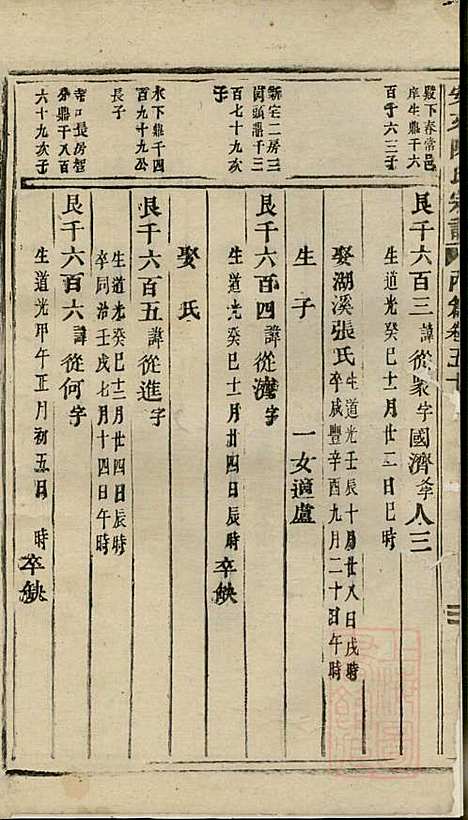 安文陳氏宗譜
殿下春常邑
庠生鼎千六
百千六三子
良千六百三諱從彖字國濟季人三
生道光癸巳十二月廿二日巳時
娶湖溪張氏生道光壬辰十月廿八日戌時
卒咸豐辛酉九月二十日午時
生子 一女適盧
新宅二房三
百七十九次
子
良千六百四諱從濟字
生道光癸巳十一月廿四日辰時 卒缺
娶氏
水下鼎千四
百九十九公
長子
良千六百五諱從進字
生道光癸巳十二月廿四日辰時
卒同治壬戌七月十四日午時
寺口長房智
分鼎千八百
六十九次子
良千六百六諱從何字
生道光甲午正月初五日 時 卒缺